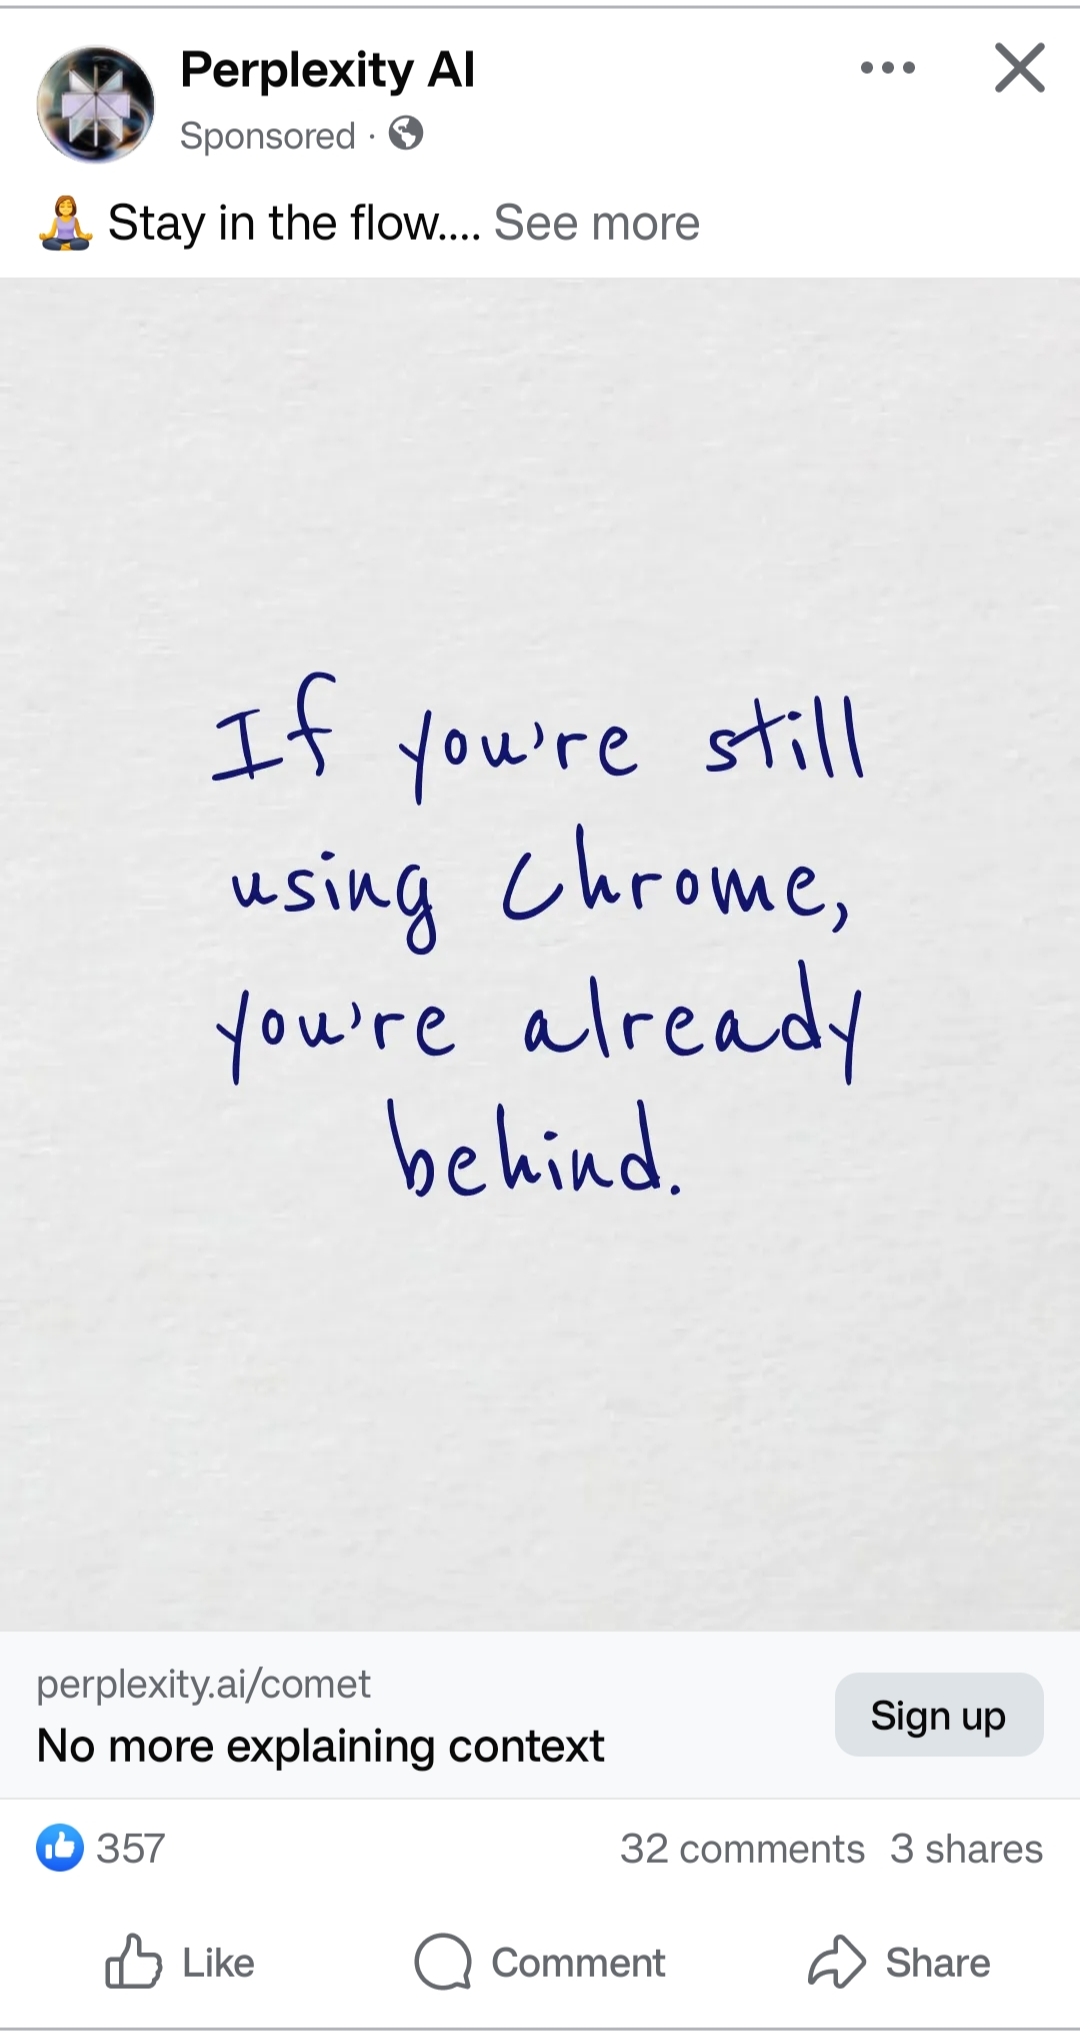 Perplexity AI
Sponsored ·
Stay in the flow.... See more
If you're still
using Chrome,
you're already
behind.
perplexity.ai/comet
No more explaining context
Sign up
357
32 comments 3 shares
Like Comment Share